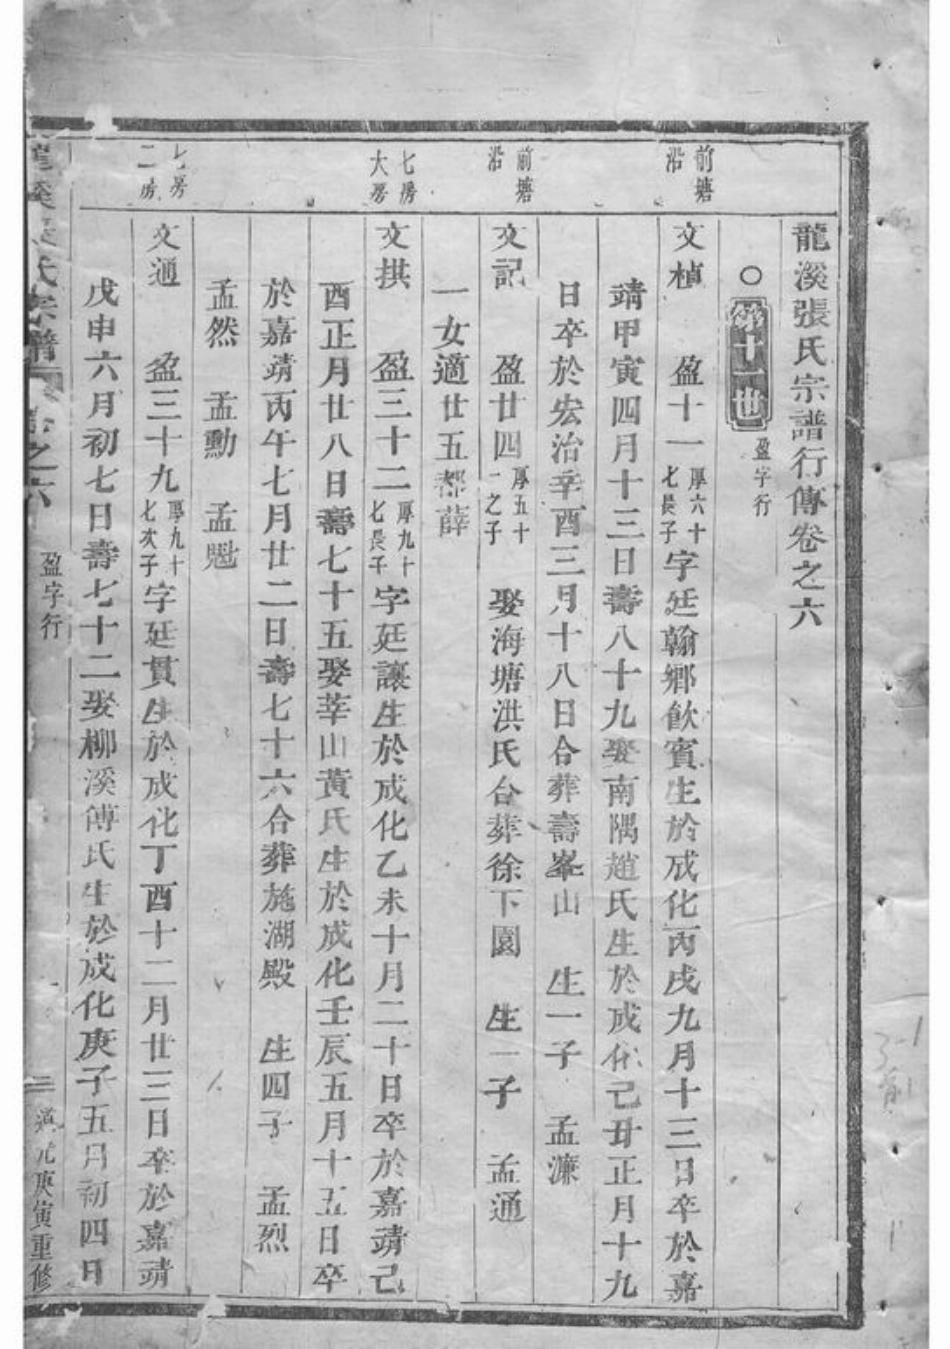 龍溪張氏宗譜行傳卷之六
○第十一世盈字行
前塘沿
文楨 盈十一厚六十七長子字廷翰鄉飲賓生於成化丙戌九月十三日卒於嘉
靖甲寅四月十三日壽八十九娶南隅趙氏生於成化己丑正月十九
日卒於宏治辛酉三月十八日合葬壽峯山 生一子 孟濂
前塘沿
文記 盈廿四厚五十一之子 娶海塘洪氏合葬徐下園 生一子 孟通
一女適廿五都薛
七房大房
文拱 盈三十二厚九十七長子字廷讓生於成化乙未十月二十日卒於嘉靖己
酉正月廿八日壽七十五娶莘山黃氏生於成化壬辰五月十五日卒
於嘉靖丙午七月廿二日壽七十六合葬施湖殿 生四子 孟烈
孟然 孟勳 孟
七房二房
文通 盈三十九厚九十七次子字廷貫生於成化丁酉十二月廿三日卒於嘉靖
戊申六月初七日壽七十二娶柳溪傅氏生於成化庚子五月初四日
龍溪張氏宗譜 卷之六 盈字行 庚寅重修